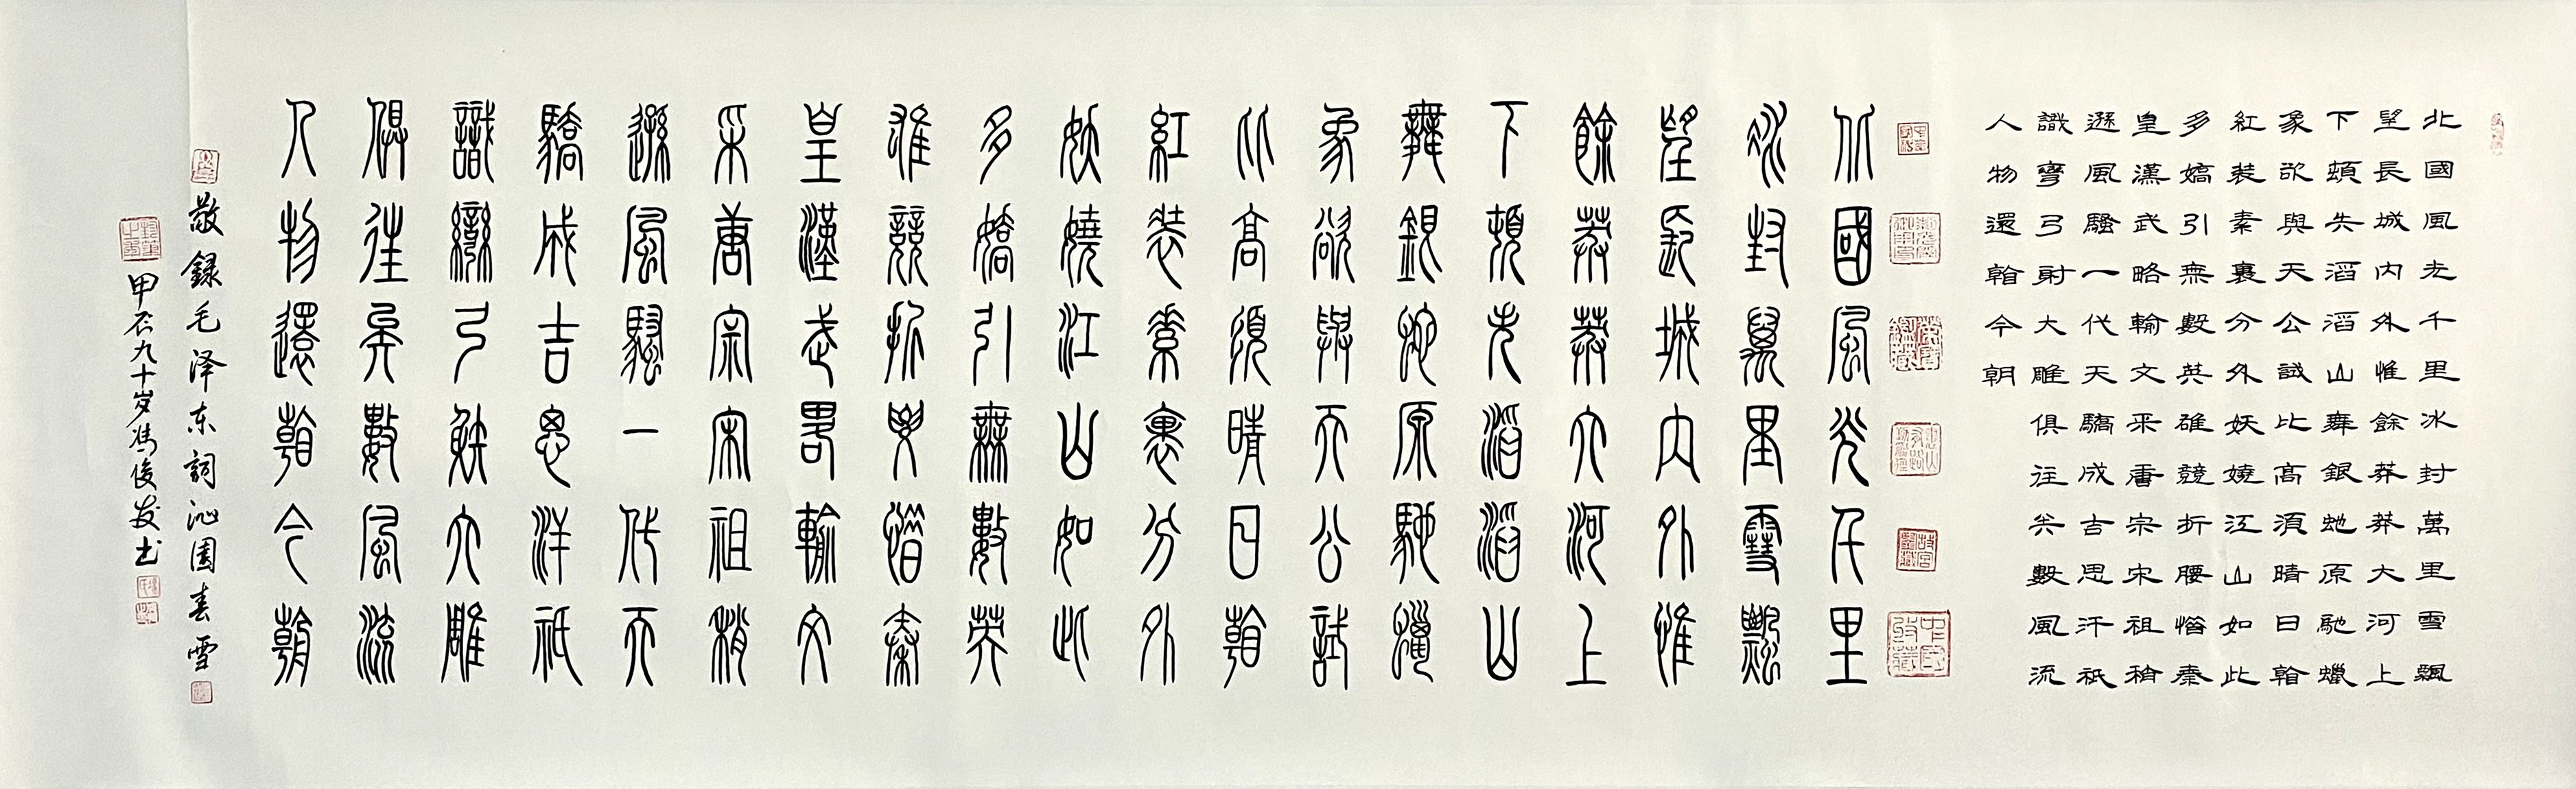 北國風光千里冰封萬里雪飄
望長城內外惟餘莽莽大河上
下頓失滔滔山舞銀蛇原馳蠟
象欲與天公試比高須晴日看
紅裝素裹分外妖嬈江山如此
多嬌引無數英雄競折腰惜秦
皇漢武略輸文采唐宗宋祖稍
遜風騷一代天驕成吉思汗祇
識彎弓射大雕俱往矣數風流
人物還看今朝
北國風光千里
冰封萬里雪飄
望長城內外惟
餘莽莽大河上
下頓失滔滔山
舞銀蛇原馳蠟
象欲與天公試
比高須晴日看
紅裝素裹分外
妖嬈江山如此
多嬌引無數英
雄競折腰惜秦
皇漢武略輸文
采唐宗宋祖稍
遜風騷一代天
驕成吉思汗祇
識彎弓射大雕
俱往矣數風流
人物還看今朝
敬録毛泽东詞沁園春雪
甲辰九十岁冯俊发书